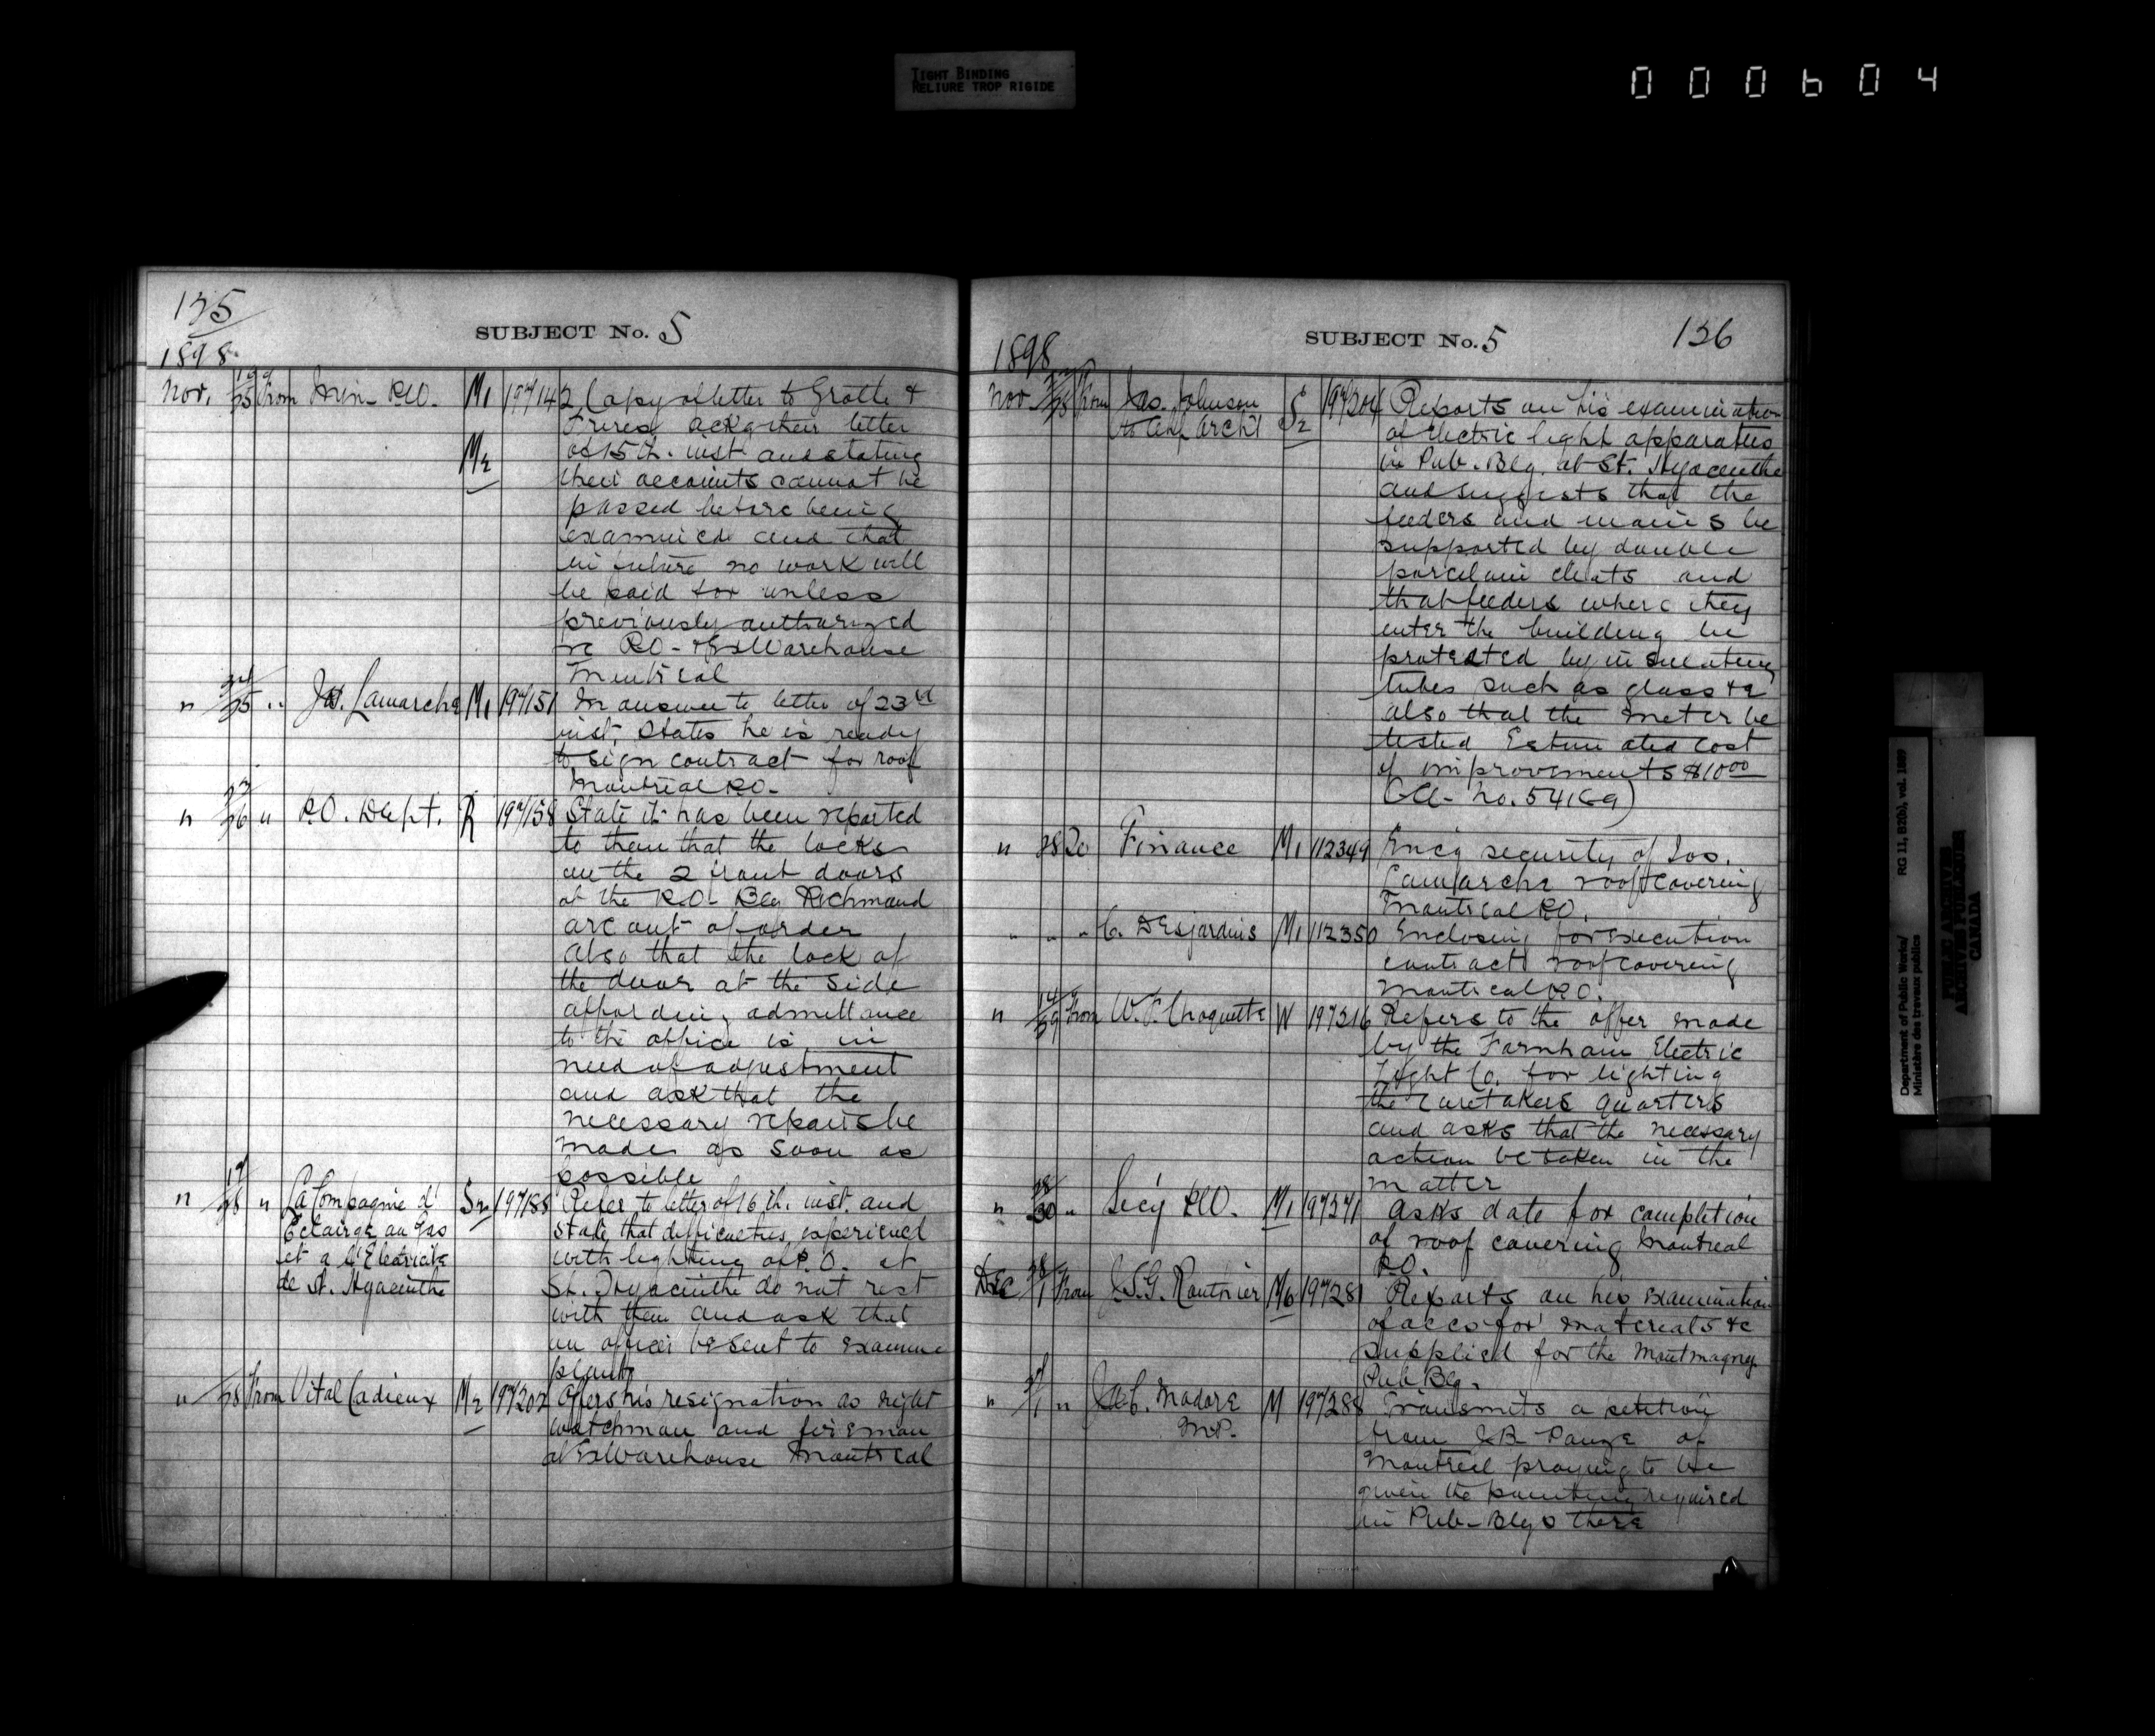 TIGHT BINDING
RELIURE TROP RIGIDE
000604
135
SUBJECT No. 5
1898
Nov. 19/25 From Min. P.W. M1 197142 Copy of letter to Grothe &
Freres ackg their letter
M2 of 15th. inst. and stating
their accounts cannot be
passed before being
examined and that
in future no work will
be paid for unless
previously authorized
re P.O. & Ex Warehouse
Montreal
" 24/25 " Jos. Lamarche M1 197151 In answer to letter of 23rd
inst. States he is ready
to sign contract for roof
Montreal P.O.
" 23/26 " P.O. Dept. R 197158 State it has been reported
to them that the locks
on the 2 front doors
of the P.O. Blg Richmond
are out of order
Also that the lock of
the door at the side
affording admittance
to the office is in
need of adjustment
and ask that the
necessary repairs be
made as soon as
possible
" /28 " La Compagnie d'
Eclairge au Gas
et a l'Electricite
de St. Hyacinthe
S2 197188 Refer to letter of 16th. inst. and
state that difficulties experienced
with lighting of P.O. at
St. Hyacinthe do not rest
with them and ask that
an officer be sent to examine
plant
" /28 From Vital Cadieux M2 197202 Offers his resignation as night
watchman and fireman
at Ex Warehouse Montreal
SUBJECT No. 5
136
1898
Nov /28 From Jas. Johnson
to Chf. Archt S2 197204 Reports on his examination
of electric light apparatus
in Pub. Blg. at St. Hyacinthe
and suggests that the
feeders and mains be
supported by double
porcelain cleats and
that feeders where they
enter the building be
protected by insulating
tubes such as glass &c
also that the meter be
tested Estimated cost
of improvements $10 00
(CA. No. 54169)
" 28 To Finance M1 112349 Encg security of Jos.
Lamarche roof covering
Montreal P.O.
" " " C. Desjardins M1 112350 Enclosing for execution
contract roof covering
Montreal P.O.
" 14/29 From W. F. Choquette W 197316 Refers to the offer made
by the Farnham Electric
Light Co. for lighting
the caretakers quarters
and asks that the necessary
action be taken in the
matter
" 28/30 " Secy P.W. M1 197271 Asks date for completion
of roof covering Montreal
P.O.
Dec 28/1 From J.S.G. Routhier M6 197281 Reports on his examination
of accs for materials &c
supplied for the Montmagny
Pub Blg.
" /1 " J.A.C. Madore
M.P. M 197288 Transmits a petition
from J.B. Pauze of
Montreal praying to be
given the painting required
in Pub. Blgs there
Department of Public Works/
Ministère des travaux publics
RG 11, B2(b), vol. 1889
PUBLIC ARCHIVES
ARCHIVES PUBLIQUES
CANADA